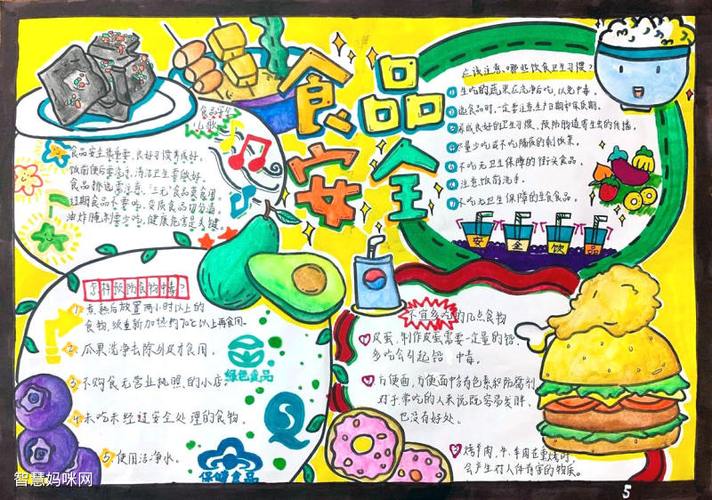 食品安全
食品安全
儿歌
食品安全很重要,良好习惯养成好。
饭前便后要洗手,清洁卫生要做好。
食品挑选需注意,"三无"食品莫食用。
过期食品不要吃,变质食品切勿沾。
油炸腌制要少吃,健康危害是关键。
应该注意哪些饮食卫生习惯?
生吃的蔬果应洗净后吃,以免中毒。
选食品时,一定要注意生产日期和保质期。
养成良好的卫生习惯,预防肠道寄生虫的传播。
尽量少吃或不吃隔夜的剩饭菜。
不吃无卫生保障的街头食品。
注意饭前洗手。
不吃无卫生保障的生食食品。
安全饮品
怎样预防食物中毒?
1 煮熟后放置两小时以上的
食物,须重新加热到70℃以上再食用。
2 瓜果洗净去除外皮才食用。
3 不购食无营业执照的小店。
4 未吃未经过安全处理的食物。
5 使用洁净水。
绿色食品
保健食品
不宜多吃的几点食物
皮蛋,制作皮蛋需要一定量的铅,
多吃会引起铅中毒。
方便面,方便面中含有色素和防腐剂
对于常吃的人来说既容易发胖、
也没有好处。
烤羊肉,牛、羊肉在熏烤时,
会产生对人体有害的物质。
5
智慧妈咪网